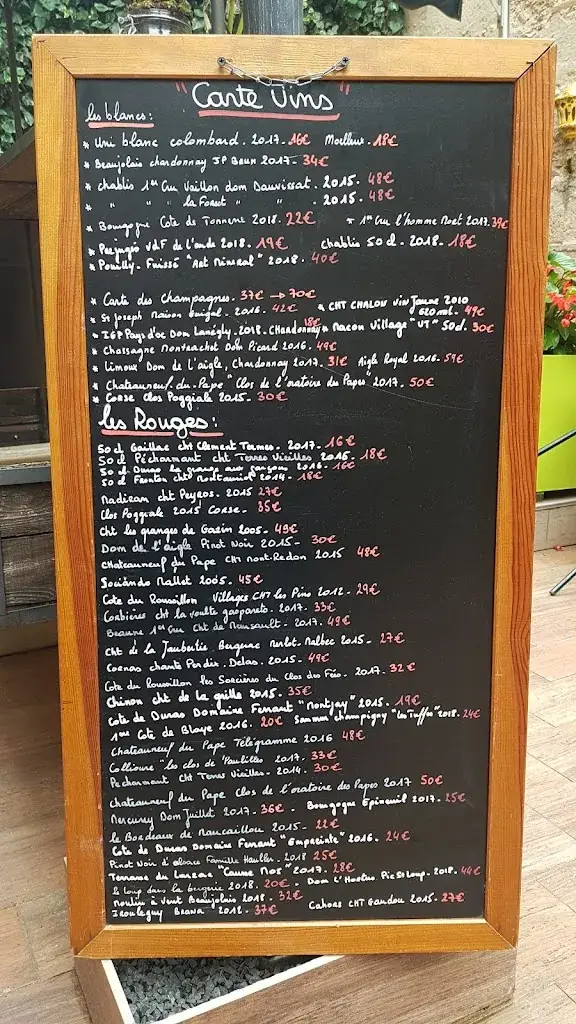 "Carte Vins"
les blancs :
* Uni blanc colombard. 2017. 16€ Moelleux. 18€
* Beaujolais chardonnay JP Brun 2017. 34€
* chablis 1er Cru Vaillon dom Dauvissat. 2015. 48€
* " " " la Forest " " . 2015. 48€
* Bourgogne Cote de Tonnerre 2018. 22€ * 1er Cru l'homme mort 2017. 39€
* Perjugio VdF de l'onde 2018. 19€ chablis 50 cl. 2018. 18€
* Pouilly-Fuissé "Art Minéral" 2018. 40€
* Carte des Champagnes. 37€ → 70€
* St Joseph Maison Guigal. 2016. 42€ * CHT CHALON Vin Jaune 2010 620 ml. 49€
* IGP Pays d'oc Dom Lanégly. 2018. CHardonnay 18€ * Macon Village "VT" 50cl. 30€
* Chassagne Montrachet Dom Picard 2016. 49€
* Limoux Dom de L'aigle, Chardonnay 2017. 31€ Aigle Royal 2016. 59€
* Chateauneuf. du. Pape "Clos de l'oratoire des Papes" 2017. 50€
* Corse Clos Poggiale 2015. 30€
les Rouges :
50 cl Gaillac cht Clement Termes. 2017. 16€
50 cl Pécharmant cht Terres Vieilles 2015. 18€
50 cl. Duras la grange aux garçons 2016. 16€
50 cl Fronton cht Montauriol 2014. 18€
Madiran cht Peyros. 2015 27€
Clos Poggiale 2015 Corse. 35€
Cht les granges de Gazin 2005. 49€
Dom de l'aigle Pinot Noir 2015. 30€
CHateauneuf du Pape CHt Mont-Redon 2015 48€
Sociando Mallet 2005. 45€
Cote du Roussillon Villages CHT les Pins 2012. 29€
Corbières cht la voulte gasparets. 2017. 33€
Beaune 1er Cru Cht de Meursault. 2017. 49€
CHt de la Jaubertie Bergerac Merlot-Malbec 2015. 27€
Cornas chante Perdrix. Delas. 2015. 49€
Cote du Roussillon les Sorcières du Clos des Fées. 2017. 32€
Chinon cht de la grille 2015. 35€
Cote de Duras Domaine Ferrant "Montjay" 2015. 19€
1ères Cote de Blaye 2016. 20€ Saumur champigny "Les Tuffes" 2018. 24€
Chateauneuf du Pape Télégramme 2016 48€
Collioure "les clos de Paulilles 2017. 33€
Pecharmant CHT Terres Vieilles. 2014. 30€
chateauneuf du Pape Clos de l'oratoire des Papes 2017 50€
Mercurey Dom Juillot 2017. 36€ - Bourgogne Epineuil 2017. 25€
le Bordeaux de Maucaillou 2015. 22€
Cote de Duras Domaine Ferrant "Empreinte" 2016. 24€
Pinot Noir d'alsace Famille Hauller. 2018 25€
Terrasse du Larzac "Causse Noir" 2017. 28€
le loup dans la bergerie 2018. 20€ - Dom L'Hortus Pic St Loup. 2018. 44€
moulin à Vent Beaujolais 2018. 32€
Irouleguy Brana 2018. 37€ Cahors CHT Gaudou 2015. 27€